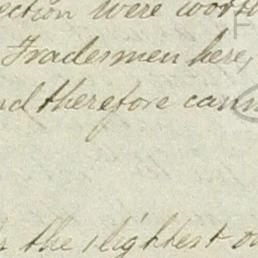 ection were worth
Tradesmen here,
nd therefore cann
the slightest o